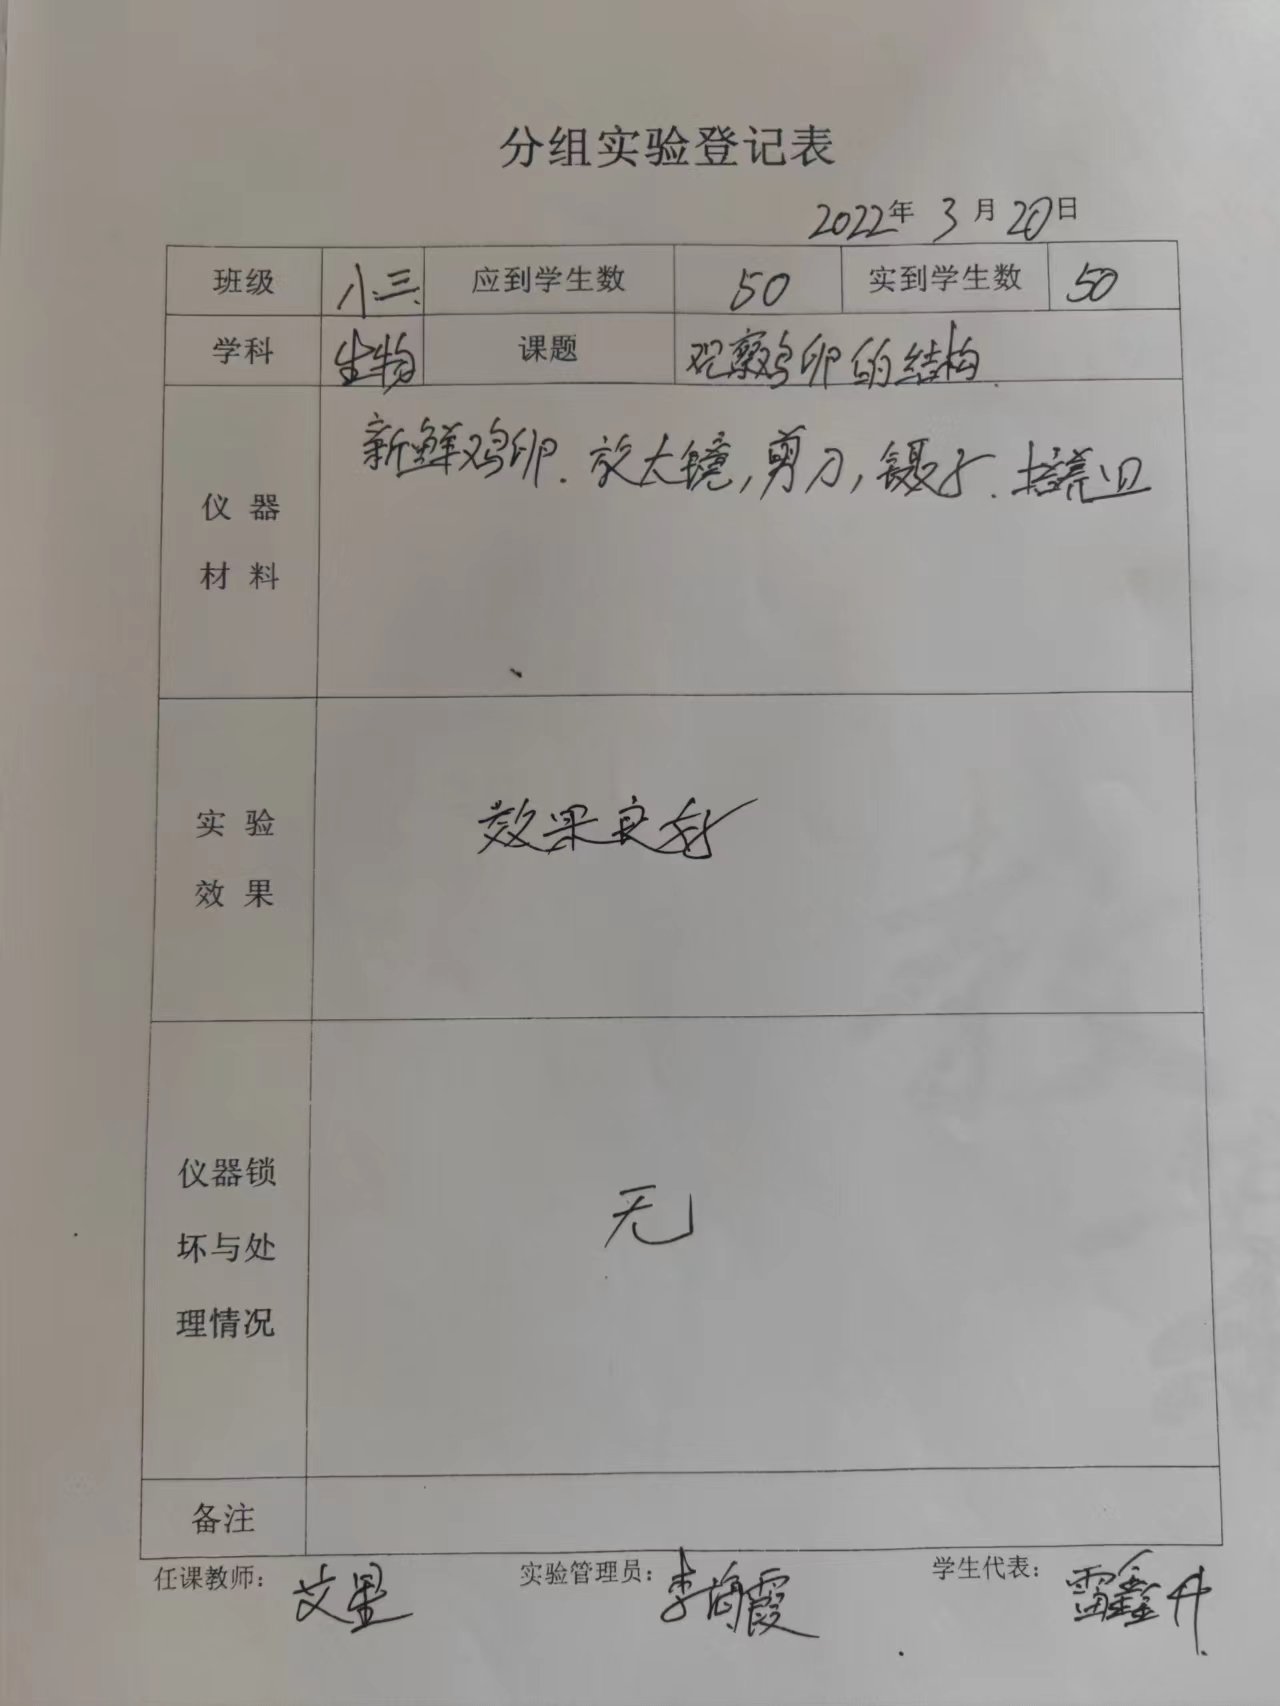 分组实验登记表
2022年 3月 20日
班级 八.三. 应到学生数 50 实到学生数 50
学科 生物 课题 观察鸡卵的结构.
仪器 材料
新鲜鸡卵.放大镜,剪刀,镊子.培养皿
实验 效果
效果良好
仪器锁
坏与处
理情况
无
备注
任课教师: 艾星 实验管理员: 李海霞 学生代表: 雷鑫升